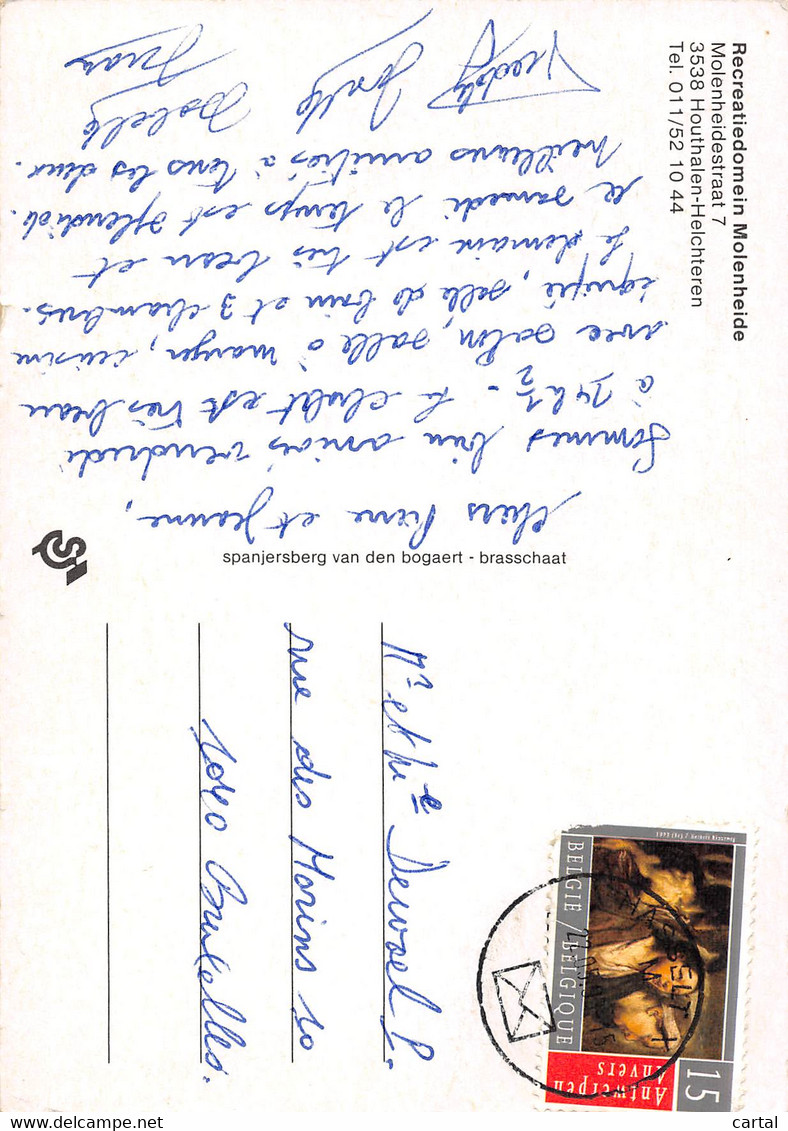 Recreatiedomein Molenheide
Molenheidestraat 7
3538 Houthalen-Helchteren
Tel. 011/52 10 44
Chers Pierre et Jeanne,
Sommes bien arrivés vendredi
à 14h 1/2 - Le chalet est très beau
avec salon, salle à manger, cuisine
équipée, salle de bain et 3 chambres.
Le domaine est très beau et
ce samedi le temps est splendide.
Meilleures amitiés à tous les deux.
Freddy
Isabelle
spanjersberg van den bogaert - brasschaat
Mr et Me Dewael P.
rue des Morins 10
1020 Bruxelles.
BELGIË / BELGIQUE
15
Antwerpen
Anvers
HASSELT
cartal